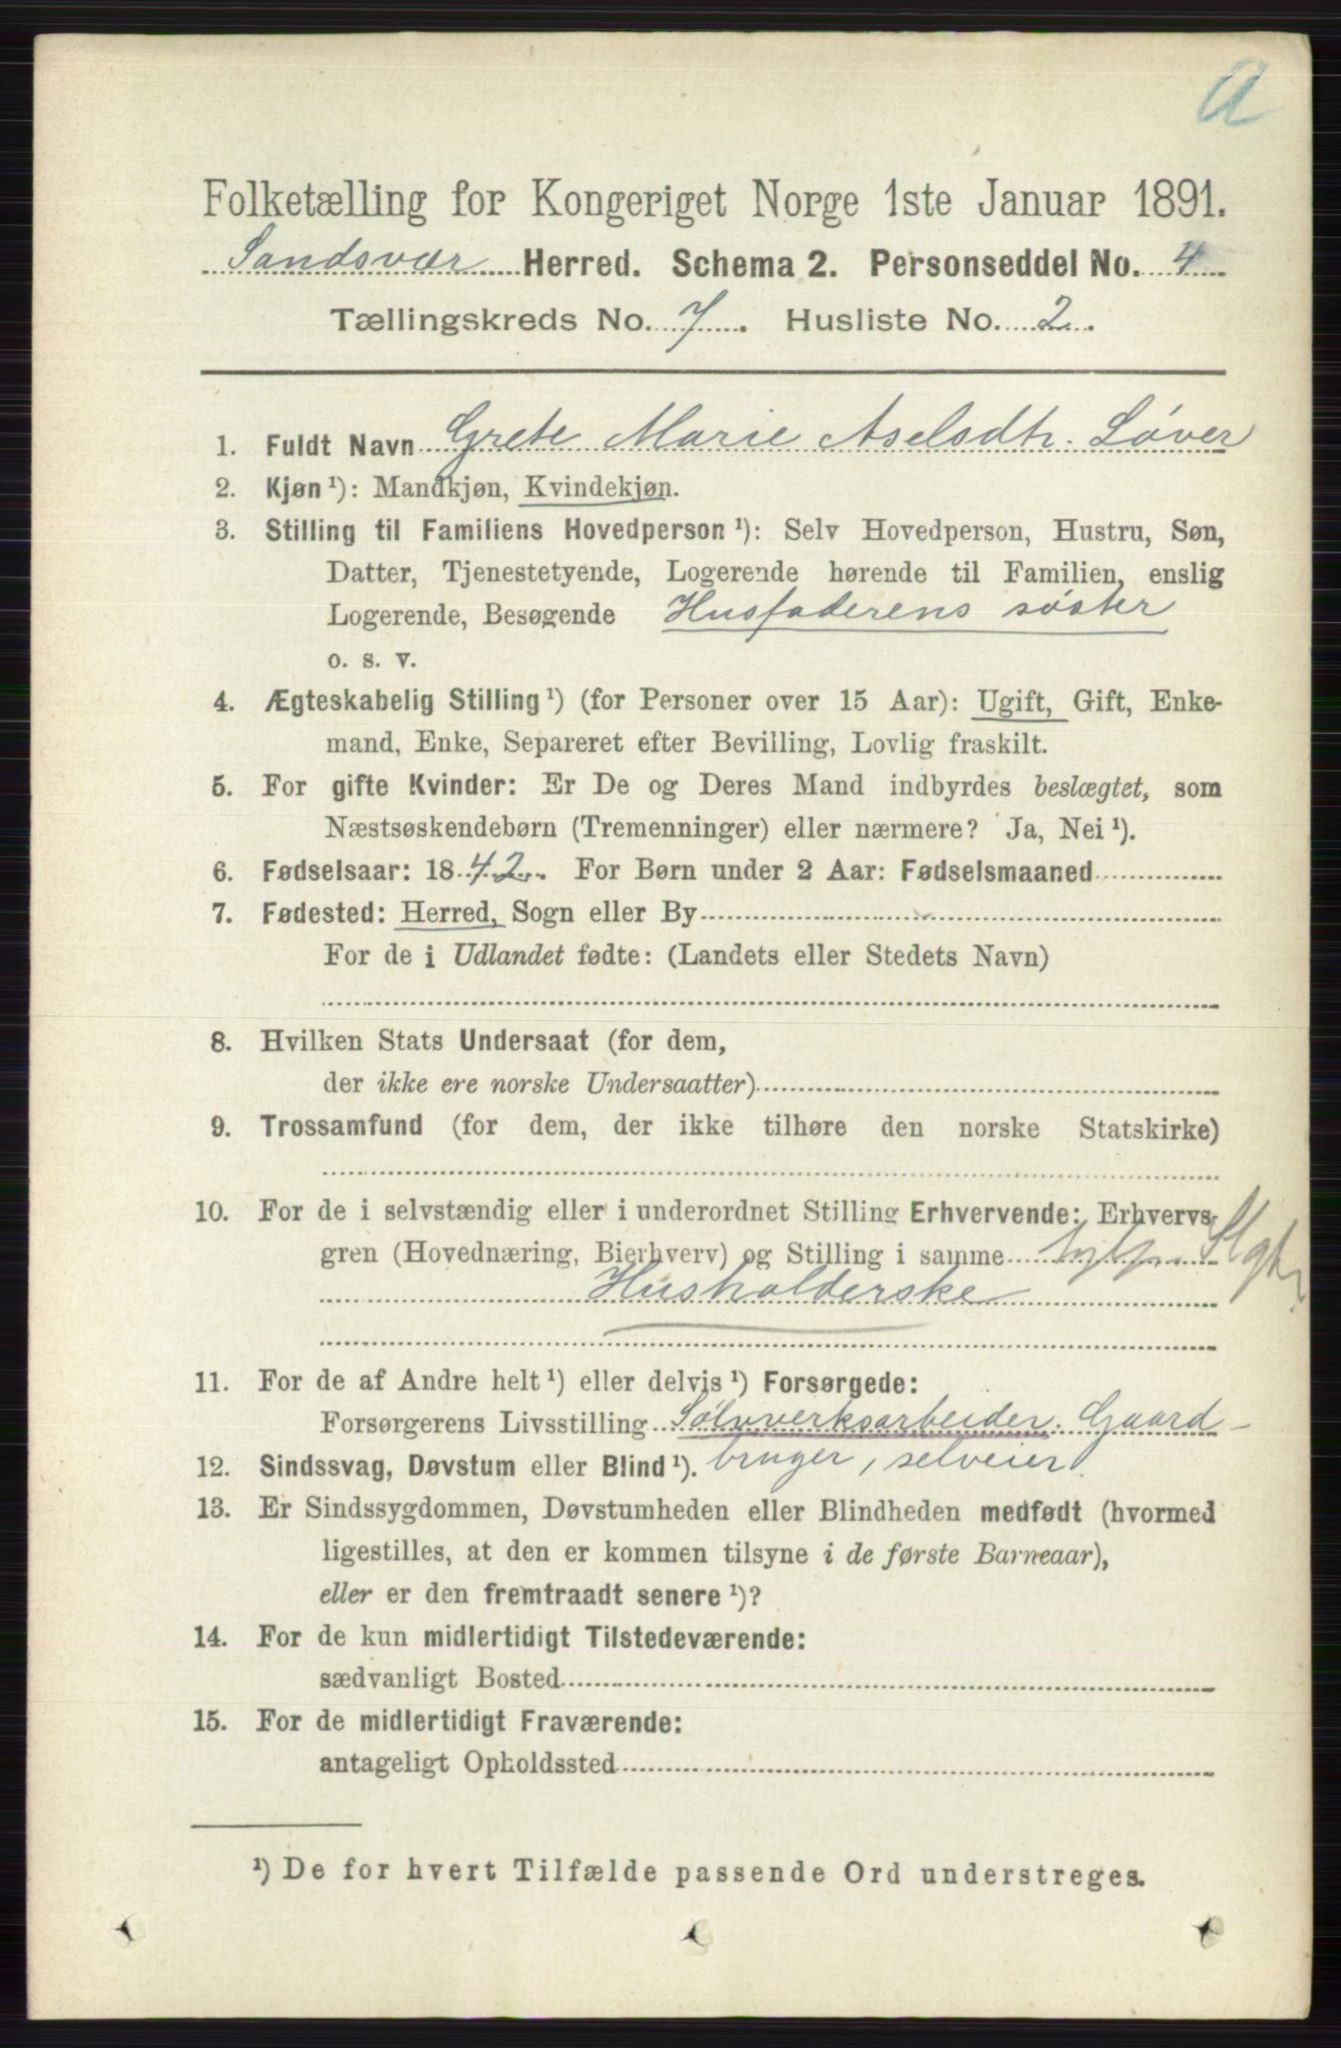 a
Folketælling for Kongeriget Norge 1ste Januar 1891.
Sandsvær Herred. Schema 2. Personseddel No. 4
Tællingskreds No. 7. Husliste No. 2.
1. Fuldt Navn Grete Marie Aselsdtr. Løver
2. Kjøn ¹): Mandkjøn, Kvindekjøn.
3. Stilling til Familiens Hovedperson ¹): Selv Hovedperson, Hustru, Søn,
Datter, Tjenestetyende, Logerende hørende til Familien, enslig
Logerende, Besøgende Husfaderens søster
o. s. v.
4. Ægteskabelig Stilling ¹) (for Personer over 15 Aar): Ugift, Gift, Enke-
mand, Enke, Separeret efter Bevilling, Lovlig fraskilt.
5. For gifte Kvinder: Er De og Deres Mand indbyrdes beslægtet, som
Næstsøskendebørn (Tremenninger) eller nærmere? Ja, Nei ¹).
6. Fødselsaar: 1842. For Børn under 2 Aar: Fødselsmaaned
7. Fødested: Herred, Sogn eller By
For de i Udlandet fødte: (Landets eller Stedets Navn)
8. Hvilken Stats Undersaat (for dem,
der ikke ere norske Undersaatter)
9. Trossamfund (for dem, der ikke tilhøre den norske Statskirke)
10. For de i selvstændig eller i underordnet Stilling Erhvervende: Erhvervs-
gren (Hovednæring, Bierhverv) og Stilling i samme
Husholderske
11. For de af Andre helt ¹) eller delvis ¹) Forsørgede:
Forsørgerens Livsstilling Sølvverksarbeider. Gaard-
12. Sindssvag, Døvstum eller Blind ¹). bruger, selveier.
13. Er Sindssygdommen, Døvstumheden eller Blindheden medfødt (hvormed
ligestilles, at den er kommen tilsyne i de første Barneaar),
eller er den fremtraadt senere ¹)?
14. For de kun midlertidigt Tilstedeværende:
sædvanligt Bosted
15. For de midlertidigt Fraværende:
antageligt Opholdssted
¹) De for hvert Tilfælde passende Ord understreges.